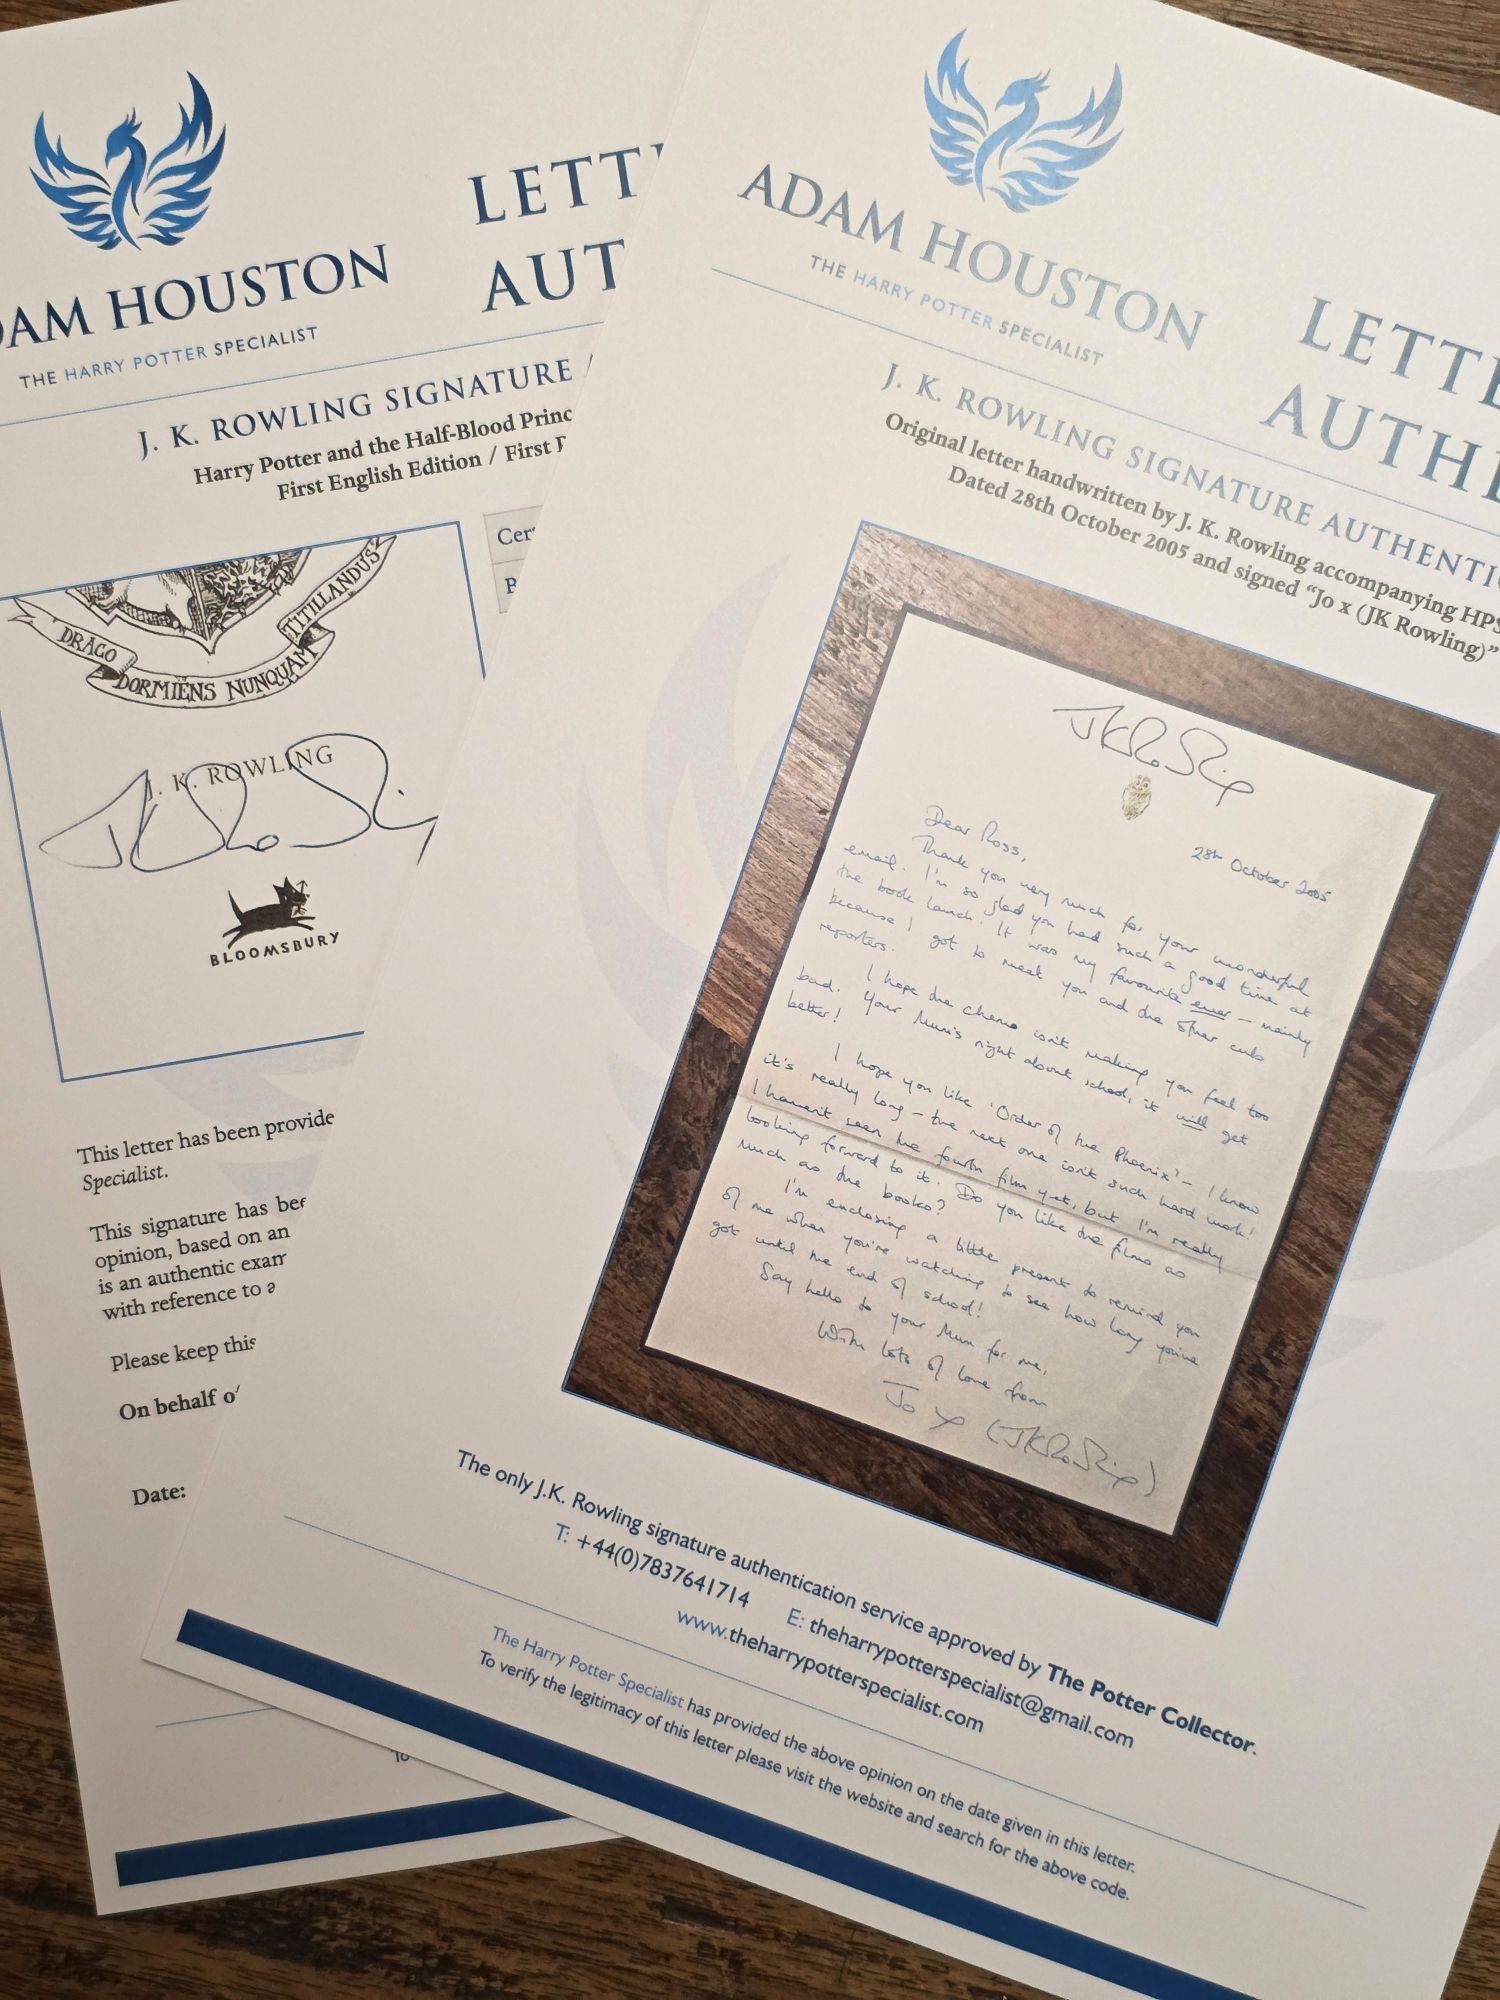 ADAM HOUSTON
THE HARRY POTTER SPECIALIST
LETT
AUT
J. K. ROWLING SIGNATURE
Harry Potter and the Half-Blood Princ
First English Edition / First
Cer
DRACO
DORMIENS NUNQUAM
TITILLANDUS
J. K. ROWLING
JK Rowling
BLOOMSBURY
This letter has been provide
Specialist.
This signature has bee
opinion, based on an
is an authentic exam
with reference to a
Please keep this
On behalf o
Date:
To
ADAM HOUSTON
THE HARRY POTTER SPECIALIST
LETTE
AUTHE
J. K. ROWLING SIGNATURE AUTHENTIC
Original letter handwritten by J. K. Rowling accompanying HPS
Dated 28th October 2005 and signed “Jo x (JK Rowling)”
JK Rowling
28th October 2005
Dear Ross,
Thank you very much for your wonderful
email. I'm so glad you had such a good time at
the book launch! It was my favourite ever – mainly
because I got to meet you and the other cub
reporters.
I hope the chemo isn't making you feel too
bad. Your Mum's right about school, it will get
better!
I hope you like 'Order of the Phoenix' – I know
it's really long – the next one isn't such hard work!
I haven't seen the fourth film yet, but I'm really
looking forward to it. Do you like the films as
much as the books?
I'm enclosing a little present to remind you
of me when you're watching to see how long you've
got until the end of school!
Say hello to your Mum for me,
With lots of love from
Jo x (JK Rowling)
The only J.K. Rowling signature authentication service approved by The Potter Collector.
T: +44(0)7837641714 E: theharrypotterspecialist@gmail.com
www.theharrypotterspecialist.com
The Harry Potter Specialist has provided the above opinion on the date given in this letter.
To verify the legitimacy of this letter please visit the website and search for the above code.